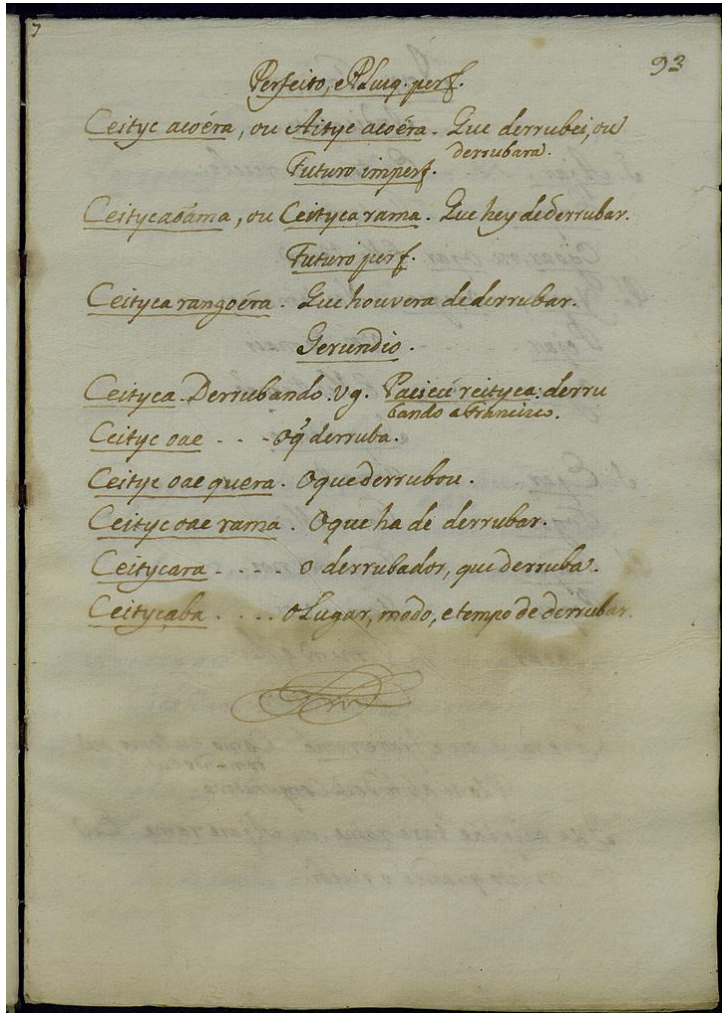 93
Perfeito, e Plusq. perf.
Ceityc acoéra, ou Aityc acoéra. Que derrubei, ou
derrubara.
Futuro imperf.
Ceitycaoáma, ou Ceityca rama. Que hey de derrubar.
Futuro perf.
Ceityca rangoéra. Que houvera de derrubar.
Gerundio.
Ceityca. Derrubando. Vg. Pacicú reityca: derru
bando a Francisco.
Ceityc oae - - - Oq̃ derruba.
Ceityc oae quera. O que derrubou.
Ceityc oae rama. O que ha de derrubar.
Ceitycara - - - - o derrubador, que derruba.
Ceitycaba . . . . o Lugar, modo, e tempo de derrubar.